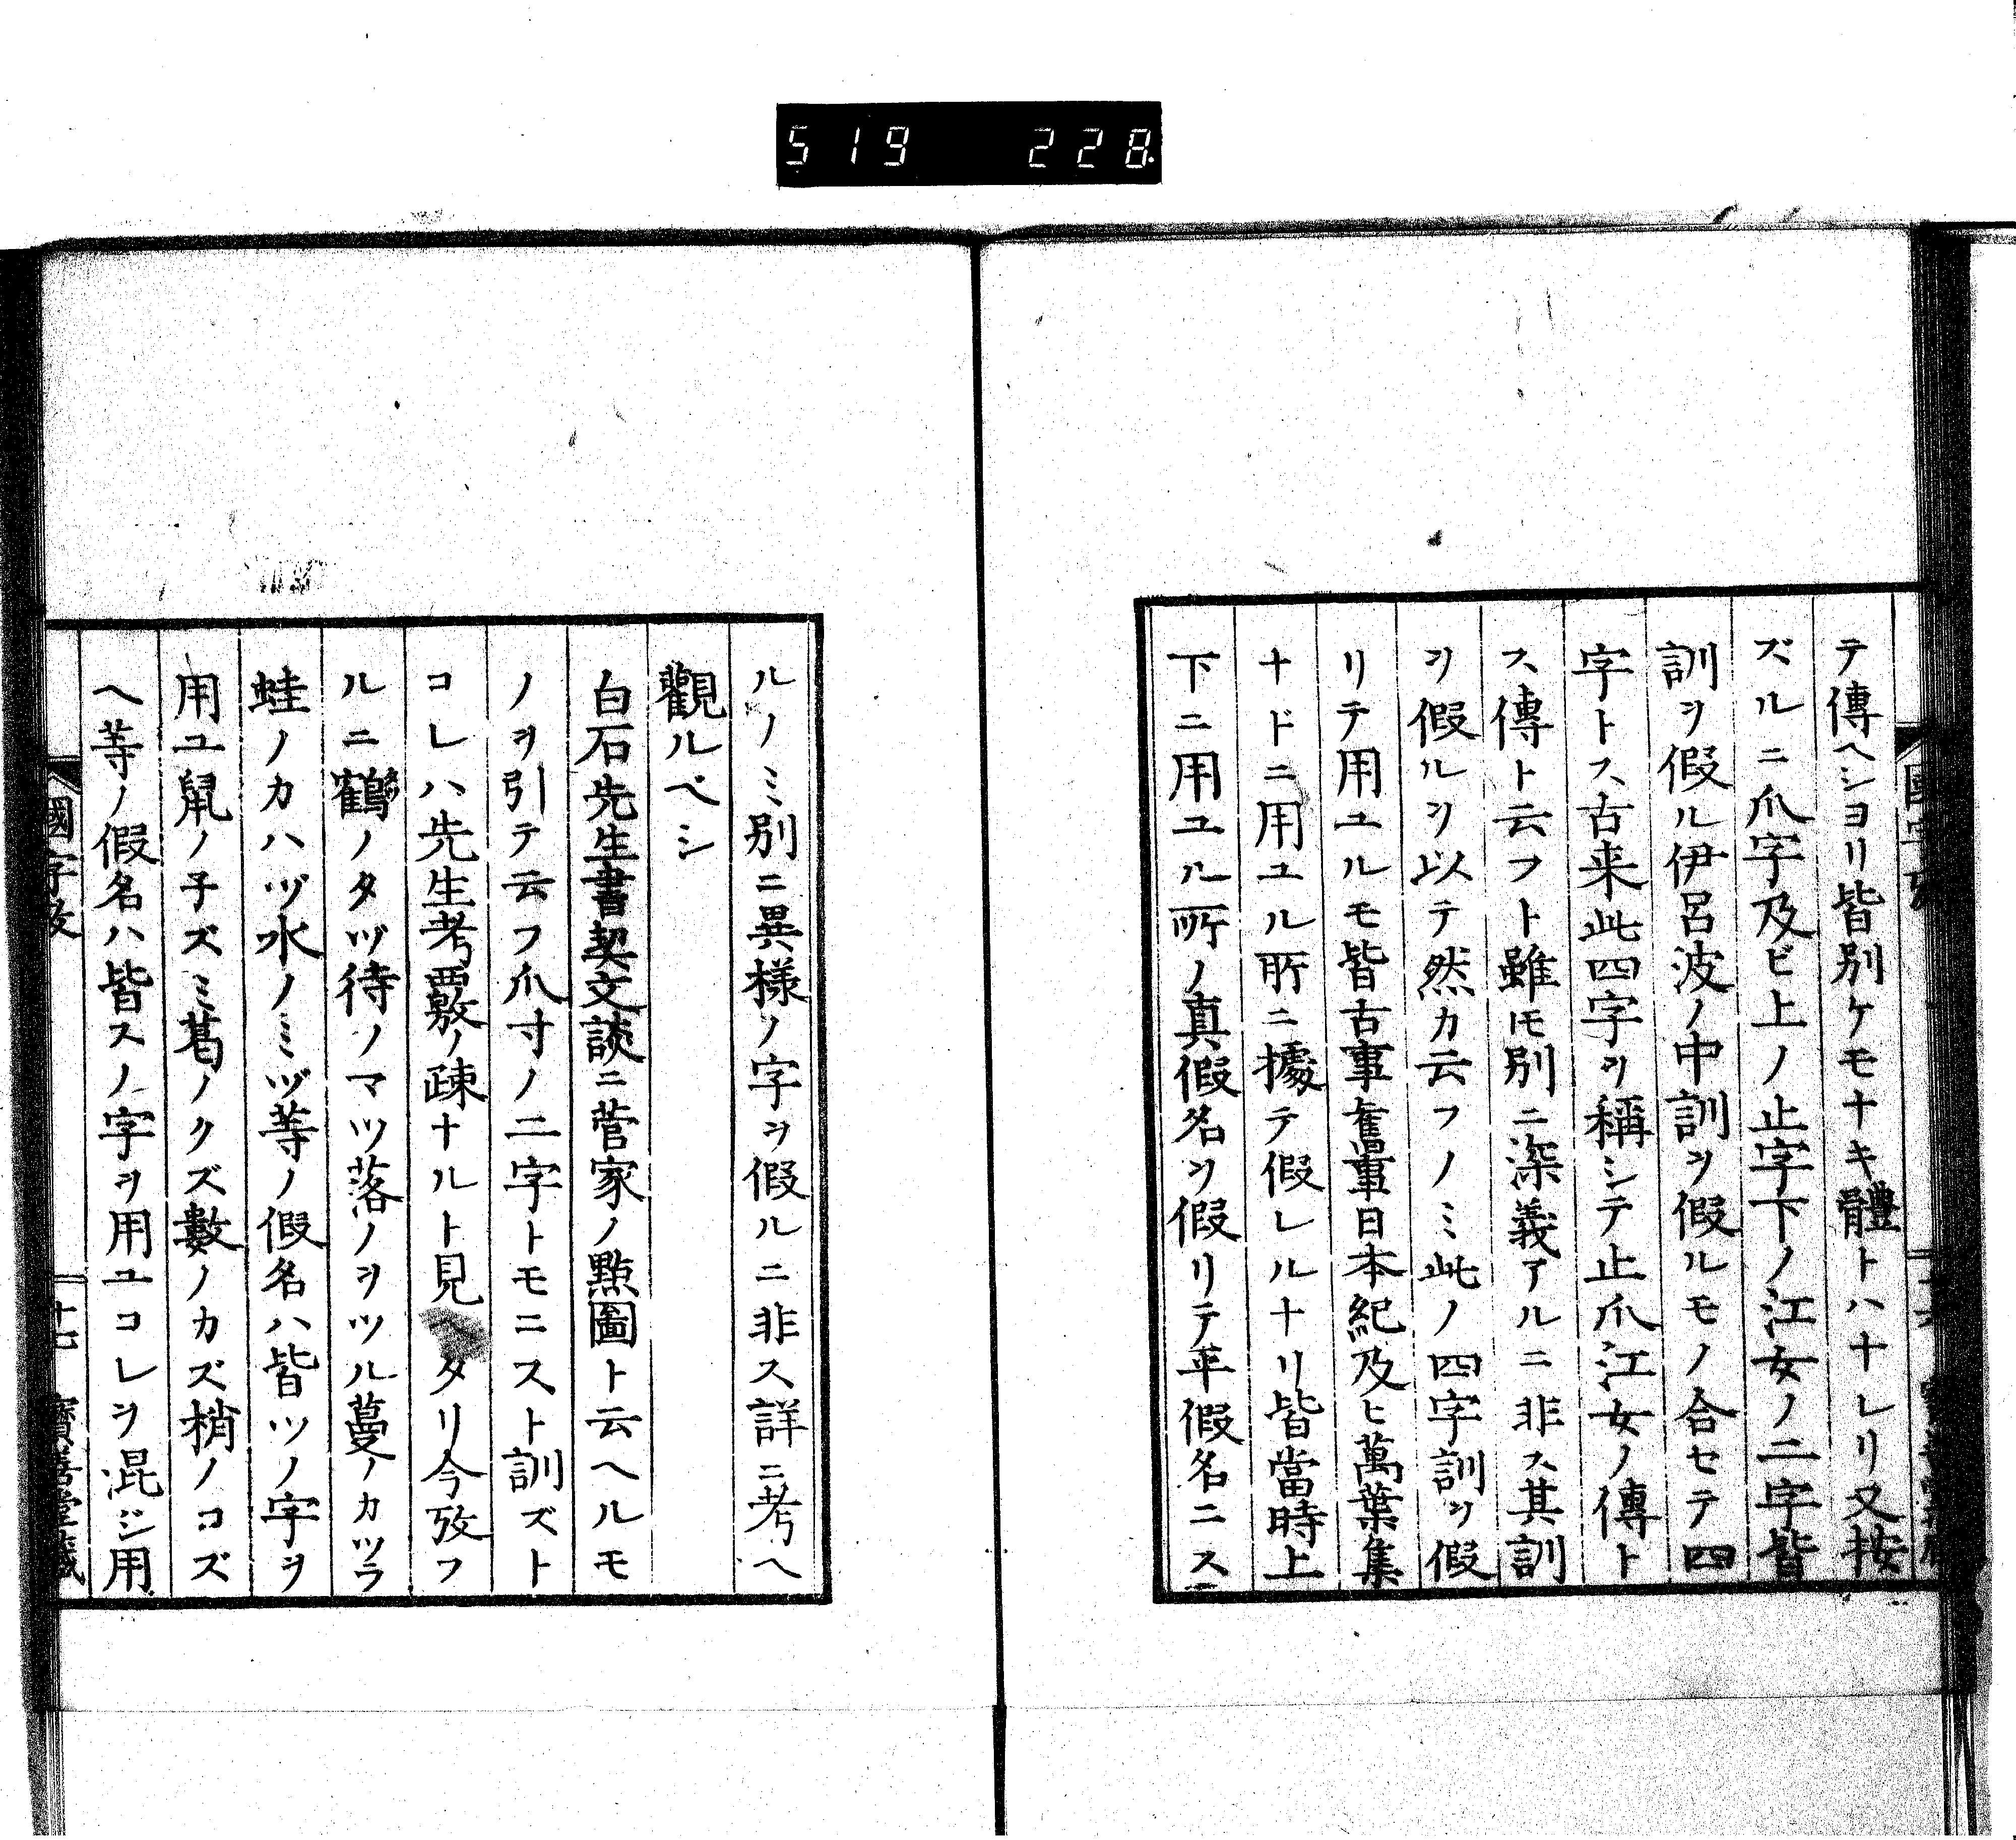 519 228
テ傳ヘシヨリ皆別ケモナキ體トハナレリ又按
ズルニ爪字及ビ上ノ止字下ノ江女ノ二字皆
訓ヲ假ル伊呂波ノ中訓ヲ假ルモノ合セテ四
字トス古来此四字ヲ稱シテ止爪江女ノ傳ト
ス傳ト云フト雖𪜈別ニ深義アルニ非ス其訓
ヲ假ルヲ以テ然カ云フノミ此ノ四字訓ヲ假
リテ用ユルモ皆古事舊事日本紀及ヒ萬葉集
ナドニ用ユル所ニ據テ假レルナリ皆當時上
下ニ用ユル所ノ真假名ヲ假リテ平假名ニス
ルノミ別ニ異様ノ字ヲ假ルニ非ス詳ニ考ヘ
觀ルベシ
白石先生書契文談ニ菅家ノ點圖ト云ヘルモ
ノヲ引テ云フ爪寸ノ二字トモニスト訓ズト
コレハ先生考覈ノ疎ナルト見ヘタリ今攷フ
ルニ鶴ノタヅ待ノマツ落ノヲツル蔓ノカツラ
蛙ノカハヅ水ノミヅ等ノ假名ハ皆ツノ字ヲ
用ユ鼠ノ子ズミ葛ノクズ數ノカズ梢ノコズ
ヘ等ノ假名ハ皆スノ字ヲ用ユコレヲ混ジ用
國字攷
十七
寶善堂藏